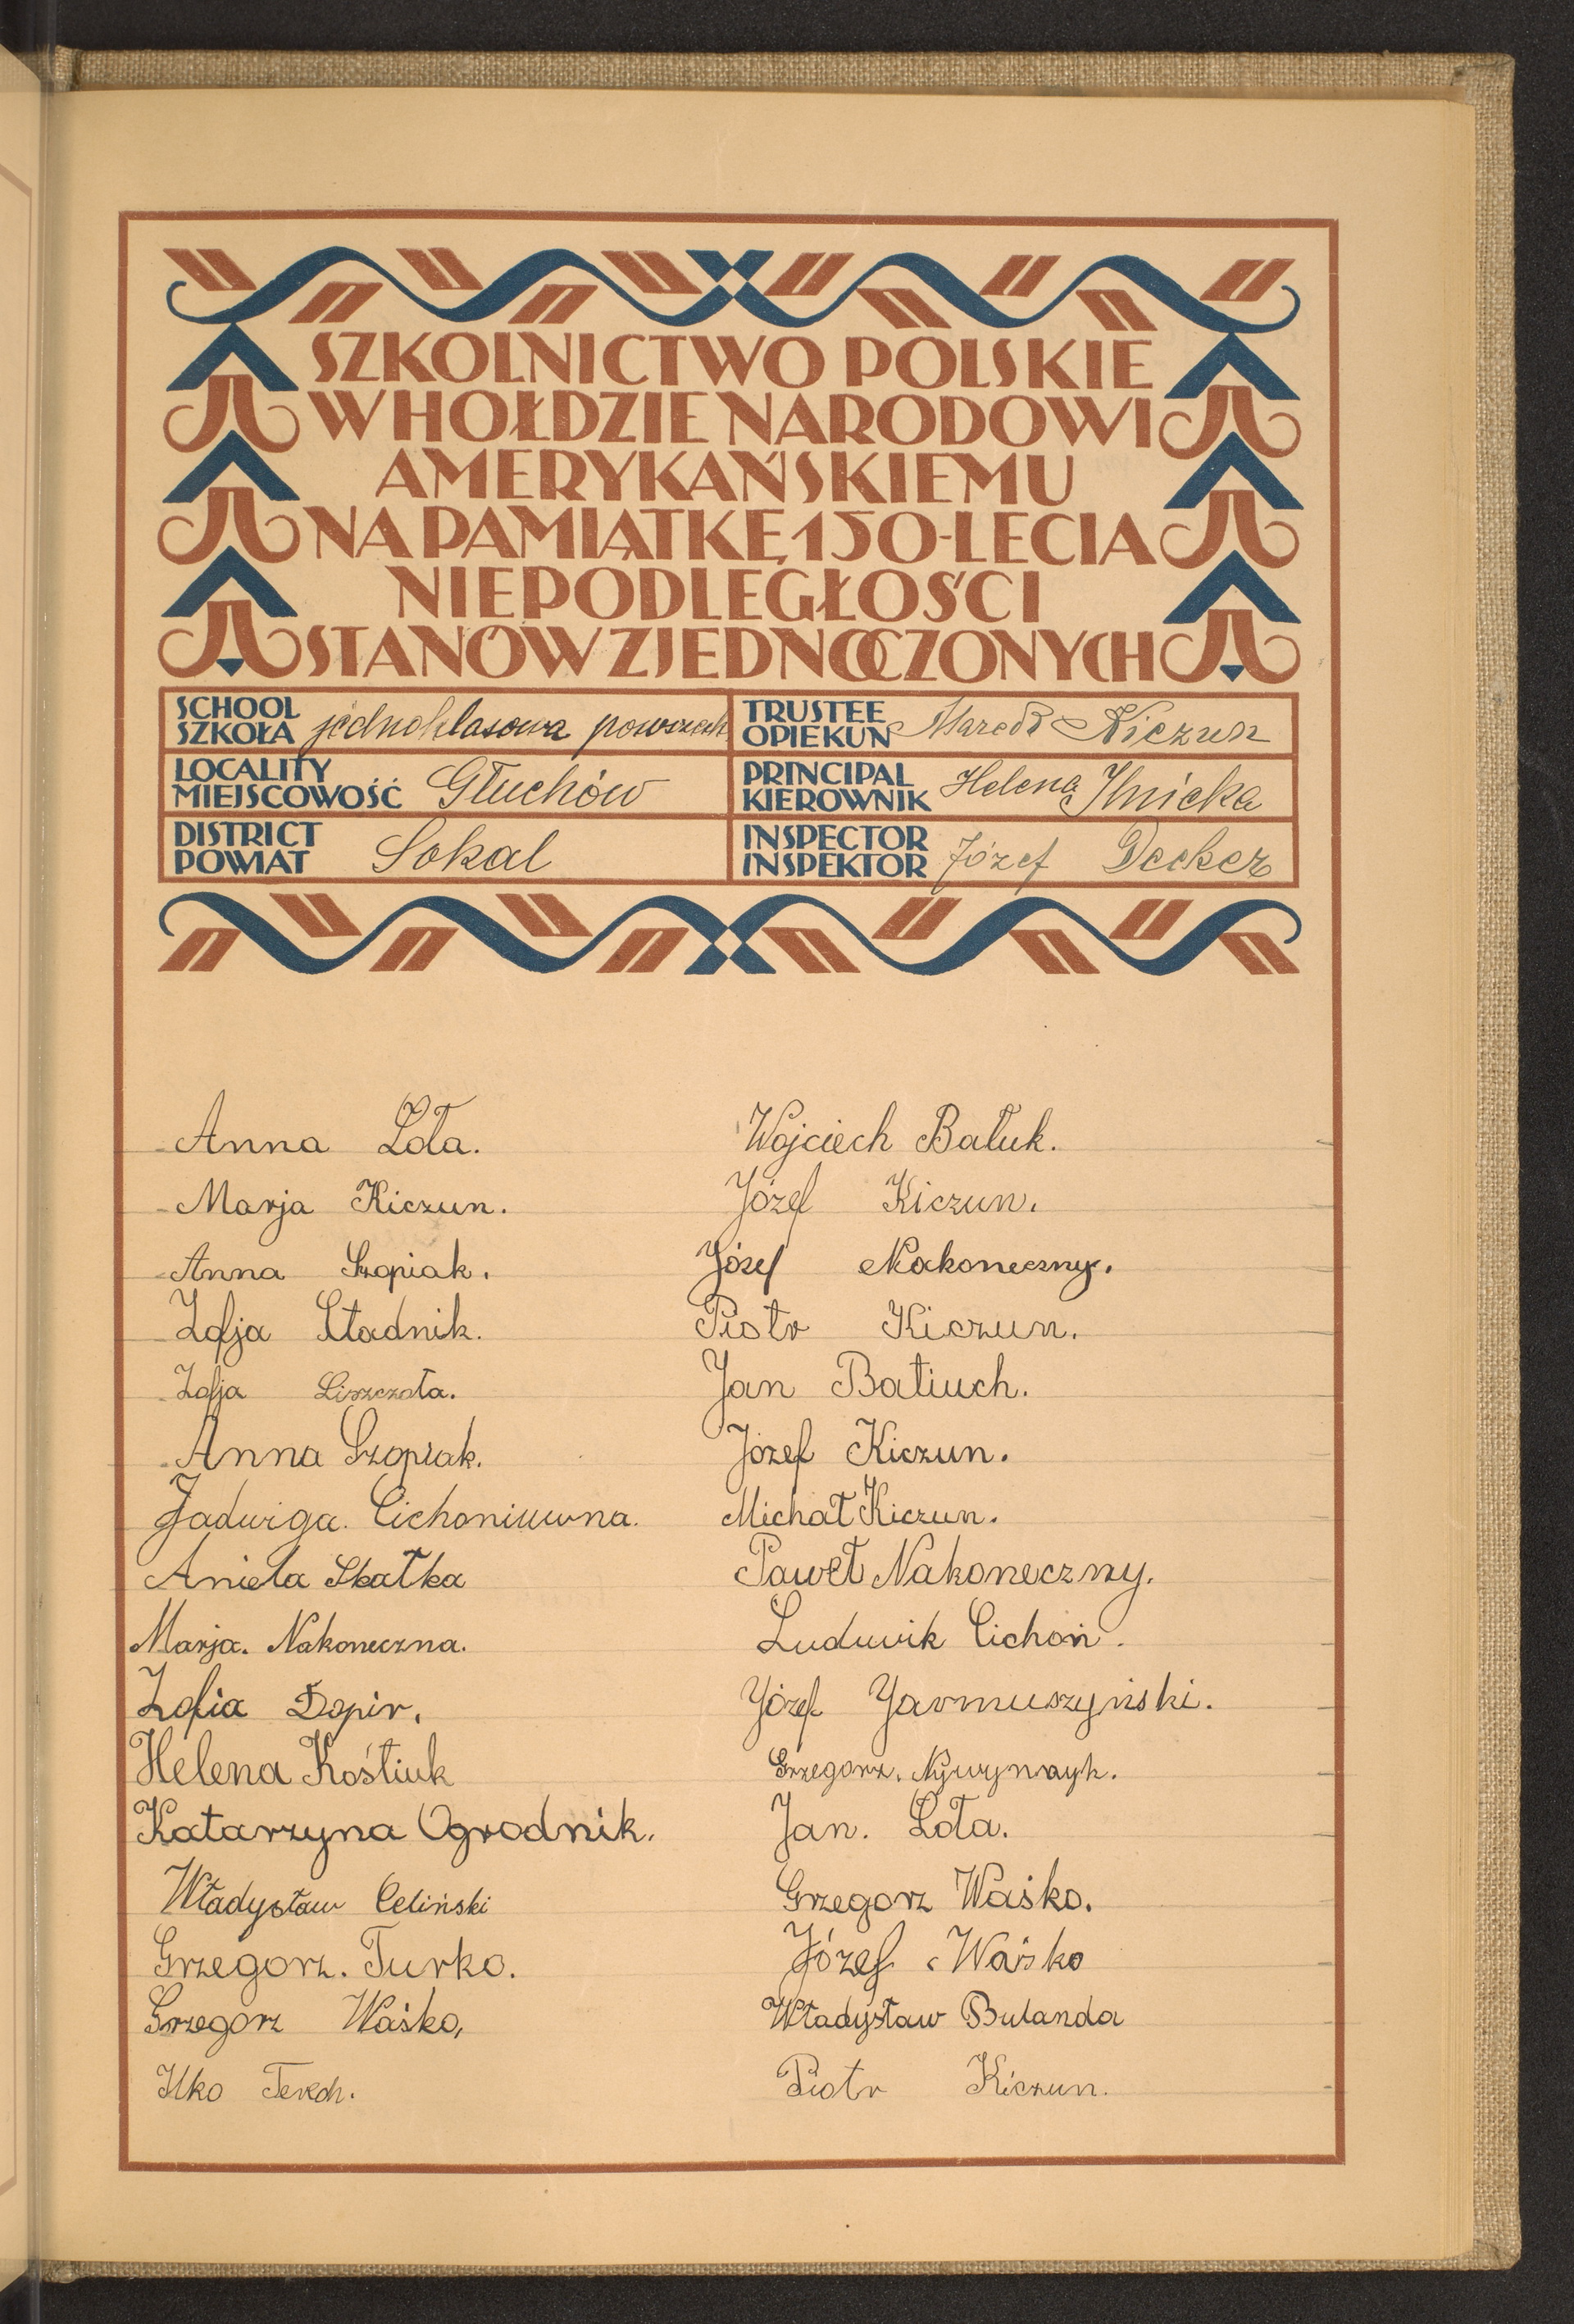 SZKOLNICTWO POLSKIE
W HOŁDZIE NARODOWI
AMERYKAŃSKIEMU
NA PAMIĄTKĘ 150-LECIA
NIEPODLEGŁOŚCI
STANÓW ZJEDNOCZONYCH
SCHOOL
SZKOŁA jednoklasowa powszech
LOCALITY
MIEJSCOWOŚĆ Głuchów
DISTRICT
POWIAT Sokal
TRUSTEE
OPIEKUN Kiczun
PRINCIPAL
KIEROWNIK Helena Ilnicka
INSPECTOR
INSPEKTOR Józef Decker
Anna Lota.
Marja Kiczun.
Anna Szopiak.
Zofja Stadnik.
Zofja Liszczota.
Anna Szopiak.
Jadwiga. Cichoniuwna.
Aniela Skałka
Marja. Nakoneczna.
Zofia Dopir.
Helena Kośtiuk
Katarzyna Ogrodnik.
Władysław Celiński
Grzegorz. Turko.
Grzegorz Waśko,
Ilko
Wojciech Bałuk.
Józef Kiczun.
Józef Nakoneczny.
Piotr Kiczun.
Jan Batiuch.
Józef Kiczun.
Michał Kiczun.
Paweł Nakoneczny.
Ludwik Cichoń.
Józef Jarmuszyński.
Grzegorz.
Jan. Lota.
Grzegorz Waśko.
Józef Waśko
Władysław Bulanda
Piotr Kiczun.